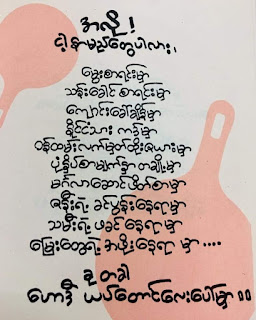 အလို !
ငါ့နာမည်တွေပါလား ၊
မွေးစာရင်းမှာ
သန်းခေါင်စာရင်းမှာ
ကျောင်းခေါ်ချိန်မှာ
နိုင်ငံသား ကဒ်မှာ
ဝန်ထမ်းလက်မှတ်ထိုးစာရင်းမှာ
ပုံနှိပ်စာမျက်နှာ တချို့မှာ
မင်္ဂလာဆောင်ဖိတ်စာမှာ
ဇနီးရဲ့ ခင်ပွန်းနေရာမှာ
သမီးရဲ့ ဖခင်နေရာမှာ
မြေးတွေရဲ့ အဖိုးနေရာ မှာ ....
ခု တခါ
ဟောဒီ ယပ်တောင်လေးပေါ်မှာ ။ ။